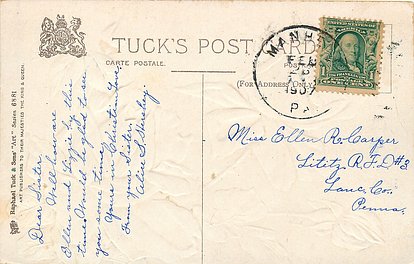 TUCK'S POST CARD
CARTE POSTALE.
(For Address Only)
MANH
FEB
1907
PA
Raphael Tuck & Sons' "Art" Series 6881
ART PUBLISHERS TO THEIR MAJESTIES THE KING & QUEEN.
Dear Sister
Well how are
Ellen and Lizzie by this
time Would be glad to see
you some time.
Yours in Christian Love
From your Sister,
Alice S. Hershey
Miss Ellen R. Carper
Lititz R.F.D #3
Lanc. Co.
Penna.